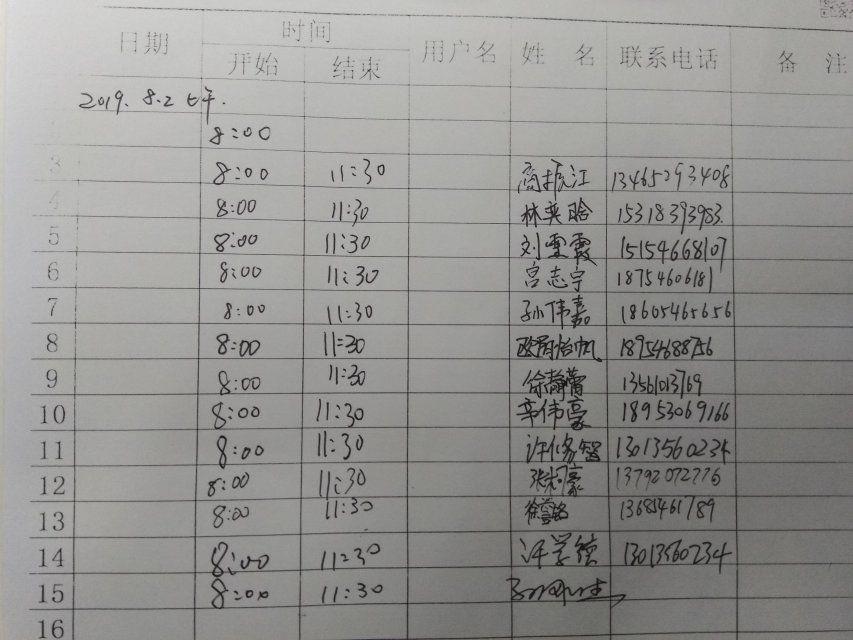 日期 时间 用户名 姓 名 联系电话 备 注
开始 结束
2019. 8.2 上午.
8:00
3 8:00 11:30 商振江 13465293408
4 8:00 11:30 林奕晗 15318393983.
5 8:00 11:30 刘雯霞 15154668107
6 8:00 11:30 宫志宇 18754606181
7 8:00 11:30 孙伟嘉 18605465656
8 8:00 11:30 欧阳怡帆 18954688756
9 8:00 11:30 徐静蕾 13561013769
10 8:00 11:30 辛伟豪 18953069166
11 8:00 11:30 许修智 13013560234
12 8:00 11:30 张柯豪 13792072776
13 8:00 11:30 13685461789
14 8:00 11:30 许学德 13013560234
15 8:00 11:30
16